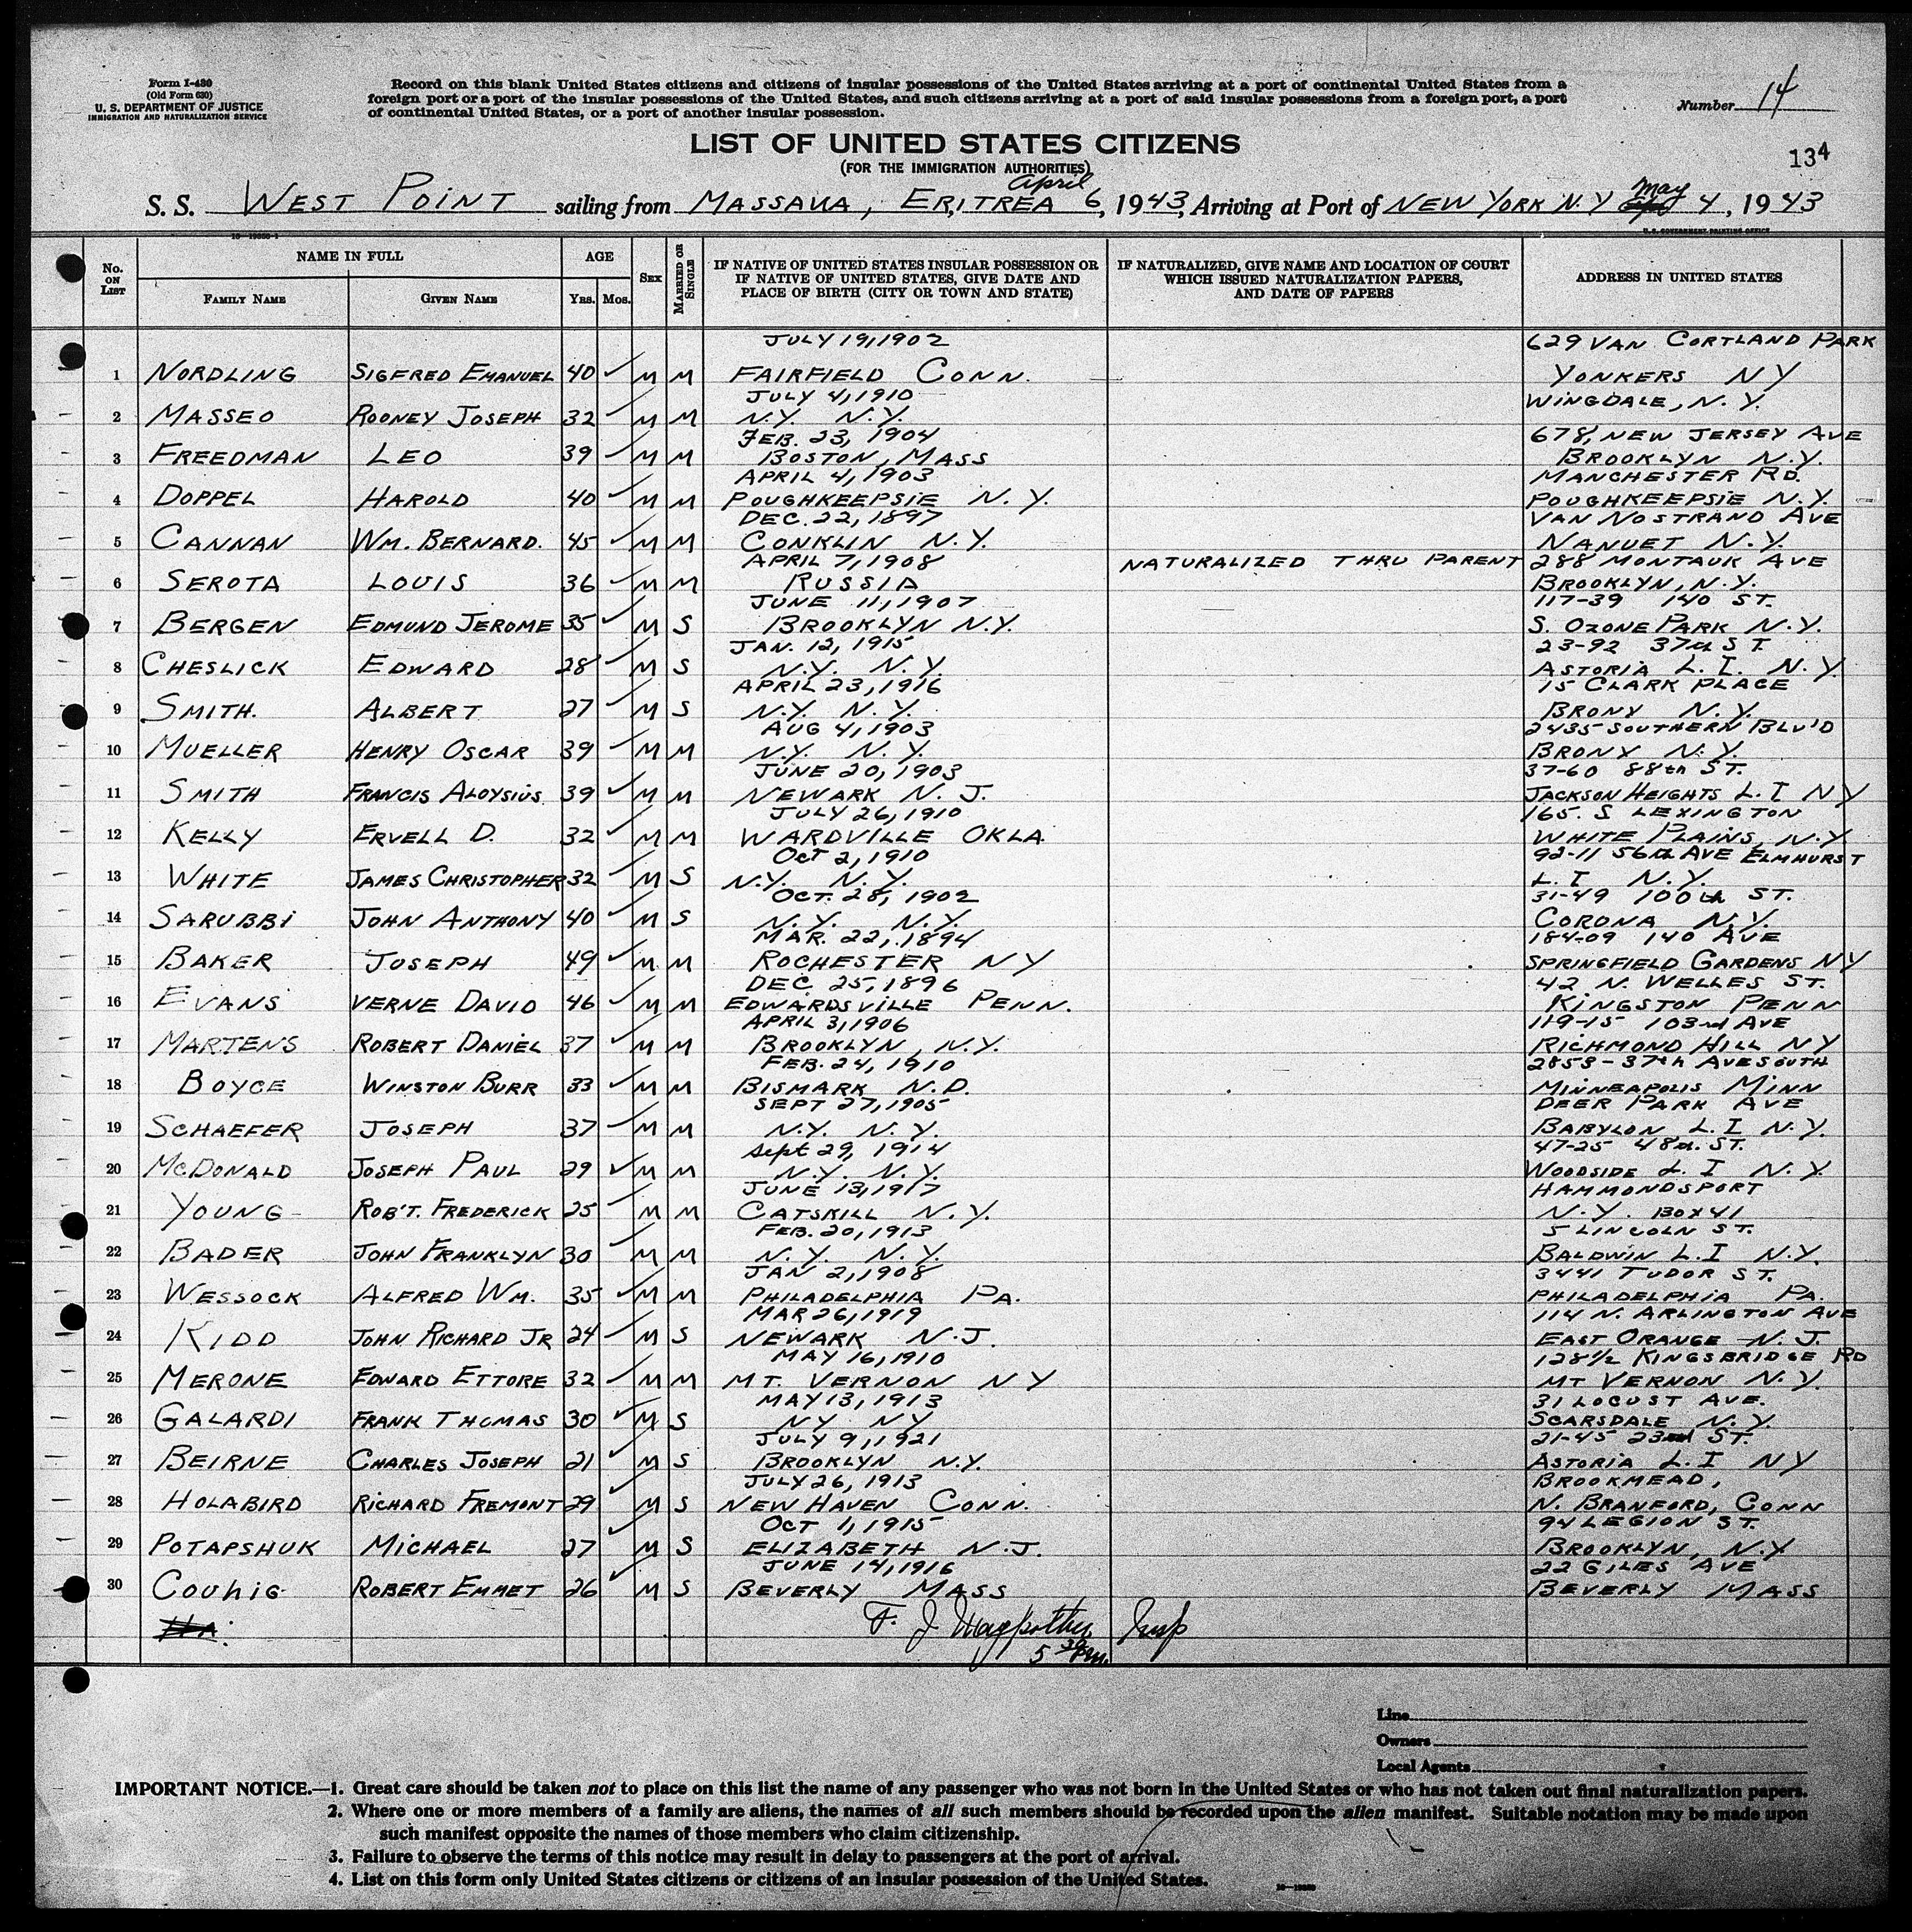 Form I-430
(Old Form 630)
U. S. DEPARTMENT OF JUSTICE
IMMIGRATION AND NATURALIZATION SERVICE
Record on this blank United States citizens and citizens of insular possessions of the United States arriving at a port of continental United States from a
foreign port or a port of the insular possessions of the United States, and such citizens arriving at a port of said insular possessions from a foreign port, a port
of continental United States, or a port of another insular possession.
Number 14
LIST OF UNITED STATES CITIZENS
(FOR THE IMMIGRATION AUTHORITIES)
134
S. S. WEST POINT sailing from MASSAUA, ERITREA April 6, 1943, Arriving at Port of NEW YORK N.Y May 4, 1943
U. S. GOVERNMENT PRINTING OFFICE
No. ON LIST
NAME IN FULL
FAMILY NAME
GIVEN NAME
AGE
Yrs. Mos.
SEX
MARRIED OR SINGLE
IF NATIVE OF UNITED STATES INSULAR POSSESSION OR
IF NATIVE OF UNITED STATES, GIVE DATE AND
PLACE OF BIRTH (CITY OR TOWN AND STATE)
IF NATURALIZED, GIVE NAME AND LOCATION OF COURT
WHICH ISSUED NATURALIZATION PAPERS,
AND DATE OF PAPERS
ADDRESS IN UNITED STATES
JULY 19, 1902 629 VAN CORTLAND PARK
1 NORDLING SIGFRED EMANUEL 40 M M FAIRFIELD CONN. YONKERS NY
JULY 4, 1910 WINGDALE, N.Y.
2 MASSEO RODNEY JOSEPH 32 M M N.Y. N.Y.
FEB. 23, 1904 678, NEW JERSEY AVE
3 FREEDMAN LEO 39 M M BOSTON, MASS BROOKLYN N.Y.
APRIL 4, 1903 MANCHESTER RD.
4 DOPPEL HAROLD 40 M M POUGHKEEPSIE N.Y. POUGHKEEPSIE N.Y.
DEC. 22, 1897 VAN NOSTRAND AVE
5 CANNAN WM. BERNARD. 45 M M CONKLIN N.Y. NANUET N.Y.
APRIL 7, 1908 NATURALIZED THRU PARENT 288 MONTAUK AVE
6 SEROTA LOUIS 36 M M RUSSIA BROOKLYN, N.Y.
JUNE 11, 1907 117-39 140 ST.
7 BERGEN EDMUND JEROME 35 M S BROOKLYN N.Y. S. OZONE PARK N.Y.
JAN. 12, 1915 23-92 37th ST
8 CHESLICK EDWARD 28 M S N.Y. N.Y. ASTORIA L.I. N.Y.
APRIL 23, 1916 15 CLARK PLACE
9 SMITH. ALBERT 27 M S N.Y. N.Y. BRONX N.Y.
AUG 4, 1903 2435 SOUTHERN BLV'D
10 MUELLER HENRY OSCAR 39 M M N.Y. N.Y. BRONX N.Y.
JUNE 20, 1903 37-60 88th ST.
11 SMITH FRANCIS ALOYSIUS 39 M M NEWARK N.J. JACKSON HEIGHTS L.I NY
JULY 26, 1910 165. S LEXINGTON
12 KELLY ERVELL D. 32 M M WARDVILLE OKLA WHITE PLAINS, N.Y.
OCT 2, 1910 92-11 56th AVE ELMHURST
13 WHITE JAMES CHRISTOPHER 32 M S N.Y. N.Y. L.I N.Y.
OCT. 28, 1902 31-49 100th ST.
14 SARUBBI JOHN ANTHONY 40 M S N.Y. N.Y. CORONA N.Y.
MAR. 22, 1894 184-09 140 AVE
15 BAKER JOSEPH 49 M M ROCHESTER NY SPRINGFIELD GARDENS NY
DEC 25, 1896 42 N. WELLES ST.
16 EVANS VERNE DAVID 46 M M EDWARDSVILLE PENN. KINGSTON PENN
APRIL 3, 1906 119-15 103rd AVE
17 MARTENS ROBERT DANIEL 37 M M BROOKLYN, N.Y. RICHMOND HILL NY
FEB. 24, 1910 2853-37th AVE SOUTH
18 BOYCE WINSTON BURR 33 M M BISMARK N.D. MINNEAPOLIS MINN
SEPT 27, 1905 DEER PARK AVE
19 SCHAEFER JOSEPH 37 M M N.Y. N.Y. BABYLON L.I N.Y.
Sept 29, 1914 47-25 48th. ST.
20 MCDONALD JOSEPH PAUL 29 M M N.Y. N.Y. WOODSIDE L.I N.Y.
JUNE 13, 1917 HAMMONDSPORT
21 YOUNG ROB'T. FREDERICK 25 M M CATSKILL N.Y. N.Y. BOX 41
FEB. 20, 1913 5 LINCOLN ST.
22 BADER JOHN FRANKLYN 30 M M N.Y. N.Y. BALDWIN L.I N.Y.
JAN 2, 1908 3441 TUDOR ST.
23 WESSOCK ALFRED WM. 35 M M PHILADELPHIA PA. PHILADELPHIA PA.
MAR 26, 1919 114 N. ARLINGTON AVE
24 KIDD JOHN RICHARD JR 24 M S NEWARK N.J. EAST ORANGE N.J.
MAY 16, 1910 128 1/2 KINGSBRIDGE RD
25 MERONE EDWARD ETTORE 32 M M MT. VERNON NY MT VERNON N.Y.
MAY 13, 1913 31 LOCUST AVE.
26 GALARDI FRANK THOMAS 30 M S NY NY SCARSDALE N.Y.
JULY 9, 1921 21-45 23rd ST.
27 BEIRNE CHARLES JOSEPH 21 M S BROOKLYN N.Y. ASTORIA L.I NY
JULY 26, 1913 BROOKMEAD,
28 HOLABIRD RICHARD FREMONT 29 M S NEW HAVEN CONN. N. BRANFORD, CONN
OCT 1, 1915 94 LEGION ST.
29 POTAPSHUK MICHAEL 27 M S ELIZABETH N.J. BROOKLYN, N.Y
JUNE 14, 1916 22 GILES AVE
30 COUHIG ROBERT EMMET 26 M S BEVERLY MASS BEVERLY MASS
F. J. Insp
5 30 P.M.
Line
Owners
Local Agents
IMPORTANT NOTICE.—1. Great care should be taken not to place on this list the name of any passenger who was not born in the United States or who has not taken out final naturalization papers.
2. Where one or more members of a family are aliens, the names of all such members should be recorded upon the alien manifest. Suitable notation may be made upon
such manifest opposite the names of those members who claim citizenship.
3. Failure to observe the terms of this notice may result in delay to passengers at the port of arrival.
4. List on this form only United States citizens or citizens of an insular possession of the United States.